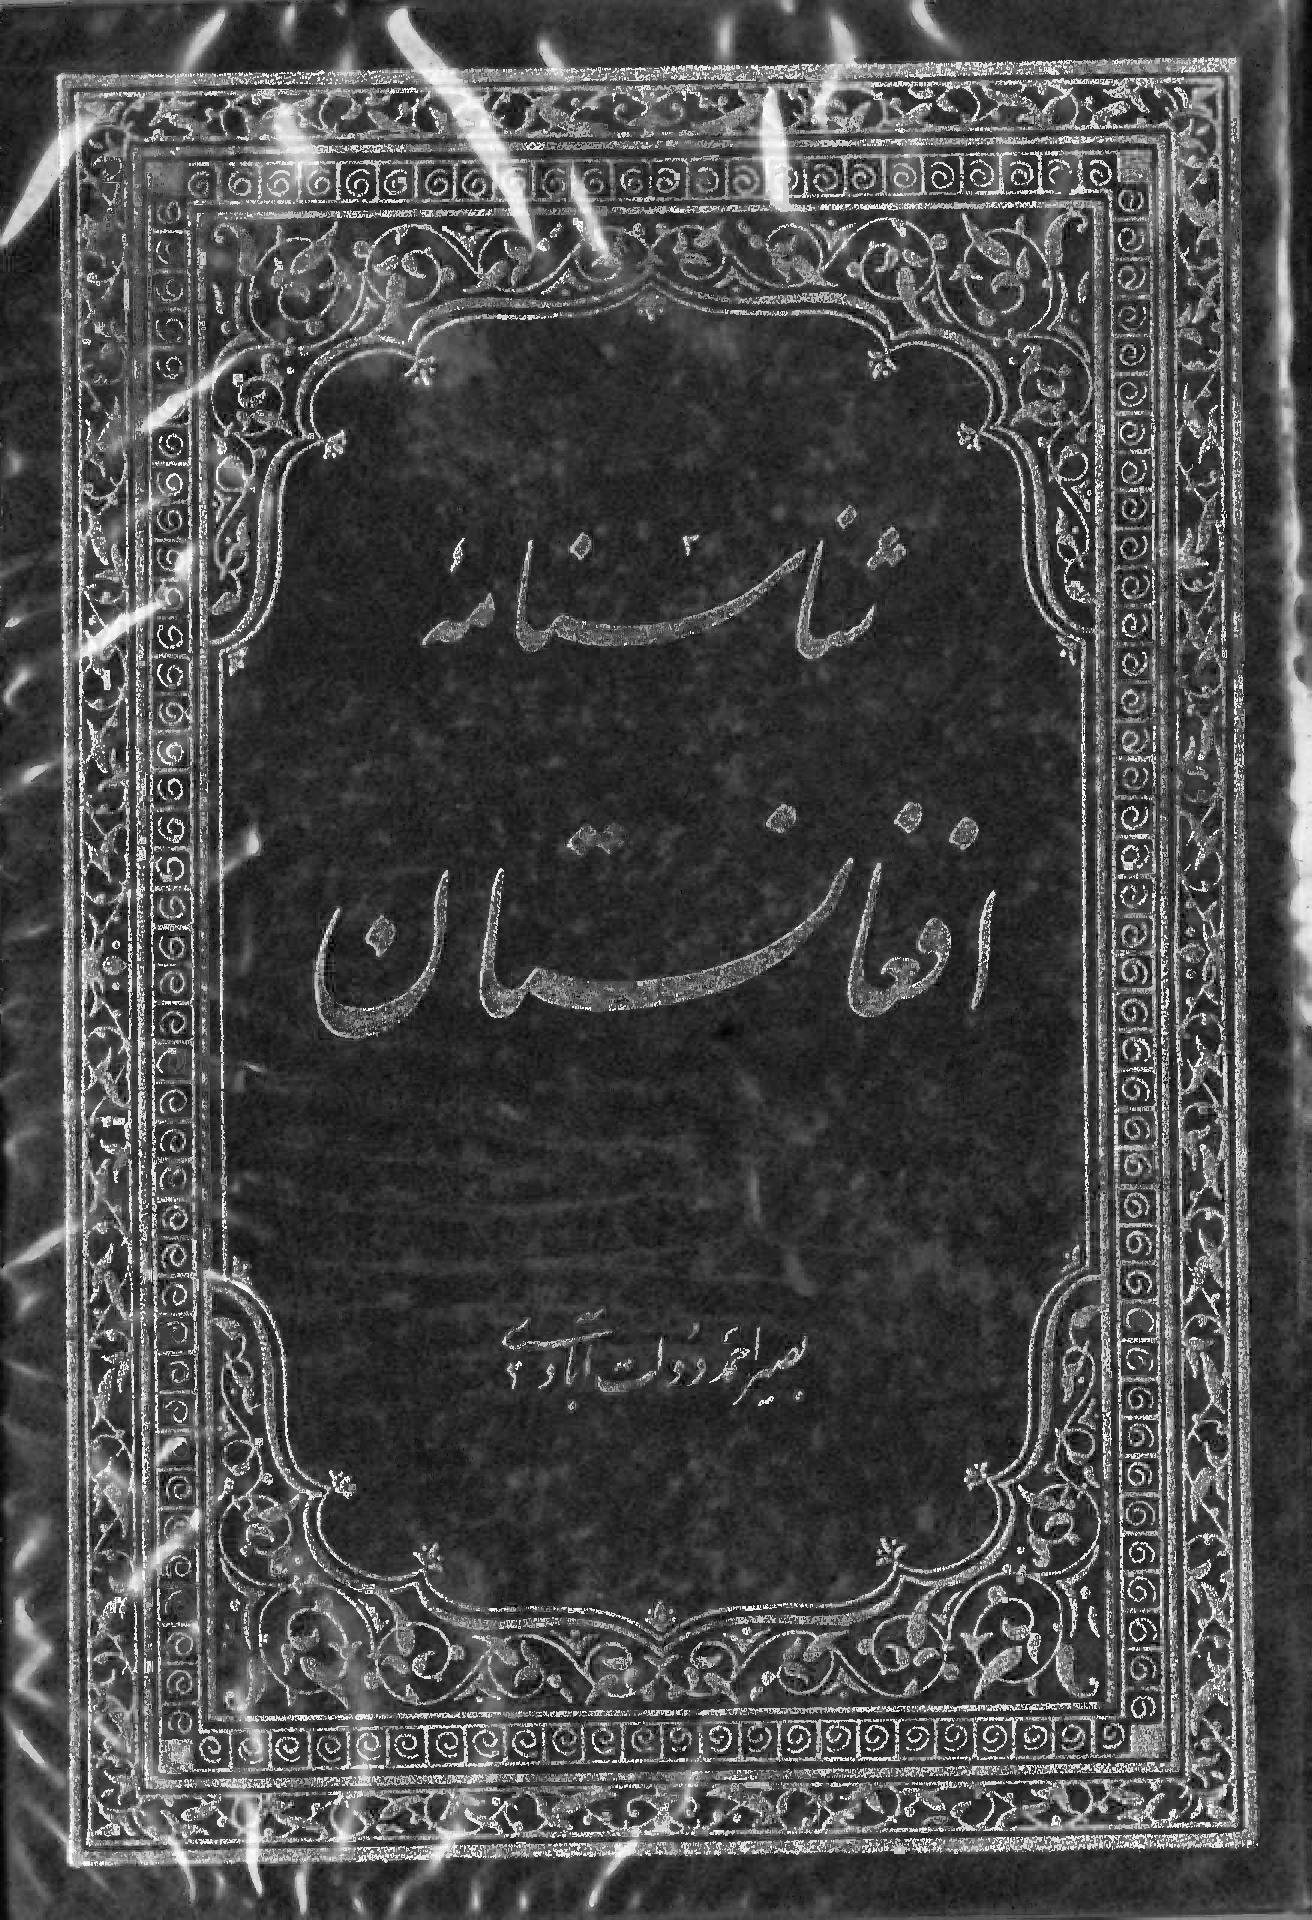 شناسنامهٔ
افغانستان
بصیر احمد دولت آبادی